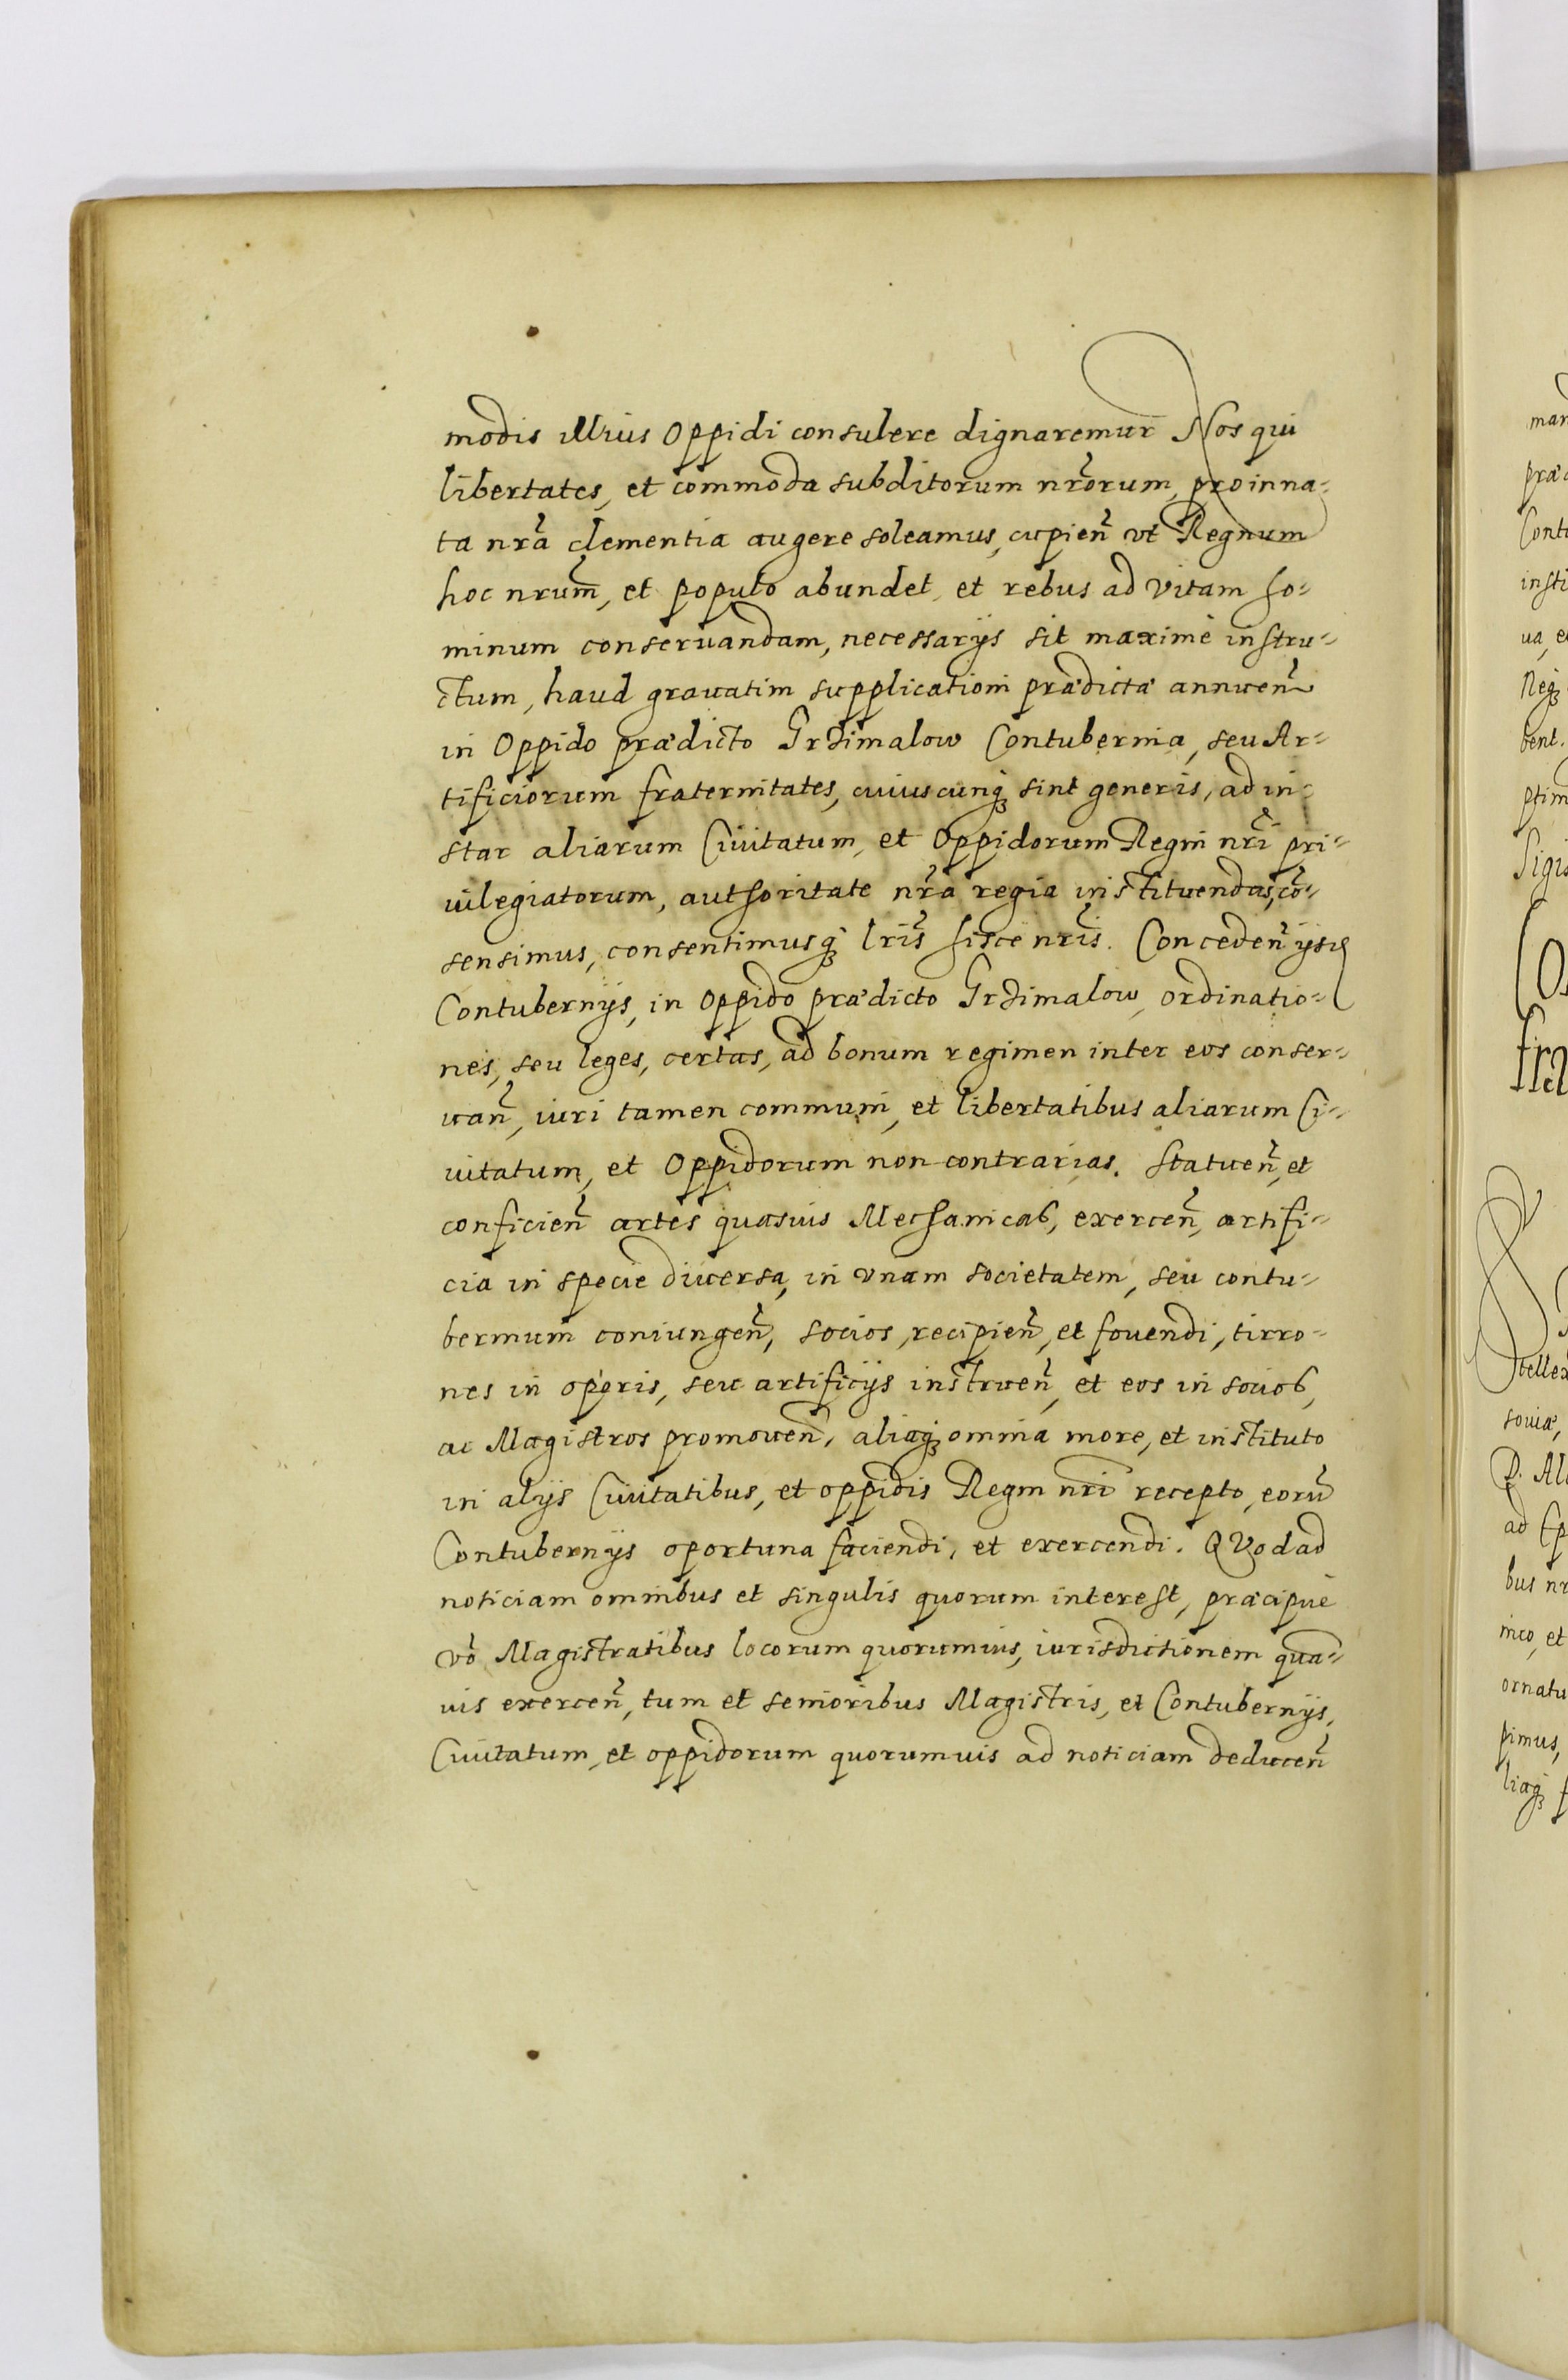 modis illius Oppidi consulere dignaremur Nos qui
libertates, et commoda subditorum nrõrum, pro inna-
ta nrã clementia augere soleamus, cupien̄ vt Regnum
hoc nrum̃, et populo abundet, et rebus ad vitam ho-
minum conseruandam, necessarijs sit maximè instru-
ctum, haud grauatim supplicationi prædictæ annuen̄
in Oppido prædicto Grzimalow Contubernia, seu Ar-
tificiorum fraternitates, cuiuscunq; sint generis, ad in-
star aliarum Ciuitatum, et Oppidorum Regni nrĩ pri-
uilegiatorum, authoritate nrã regia instituendas, cõ-
sensimus, consentimusq; lrĩs hisce nrĩs. Conceden̄ ijsd
Contubernijs, in Oppido prædicto Grzimalow, ordinatio-
nes, seu leges, certas, ad bonum regimen inter eos conser-
uan̄, iuri tamen communi, et libertatibus aliarum Ci-
uitatum, et Oppidorum non contrarias. Statuen̄, et
conficien̄ artes quasuis Mechanicas, exercen̄, artifi-
cia in specie diuersa, in vnam societatem, seu contu-
bernium coniungen̄, socios, recipien̄, et fouendi, tirro-
nes in operis, seu artificijs instruen̄, et eos in socios,
ac Magistros promouen̄, aliaq; omnia more, et instituto
in alijs Ciuitatibus, et oppidis Regni nrĩ recepto, eorũ
Contubernijs oportuna faciendi, et exercendi. QVod ad
noticiam omnibus et singulis quorum interest, præcipuè
vò Magistratibus locorum quorumuis, iurisdictionem qua-
uis exercen̄, tum et senioribus Magistris, et Contubernijs,
Ciuitatum, et oppidorum quorumuis ad noticiam deducen̄